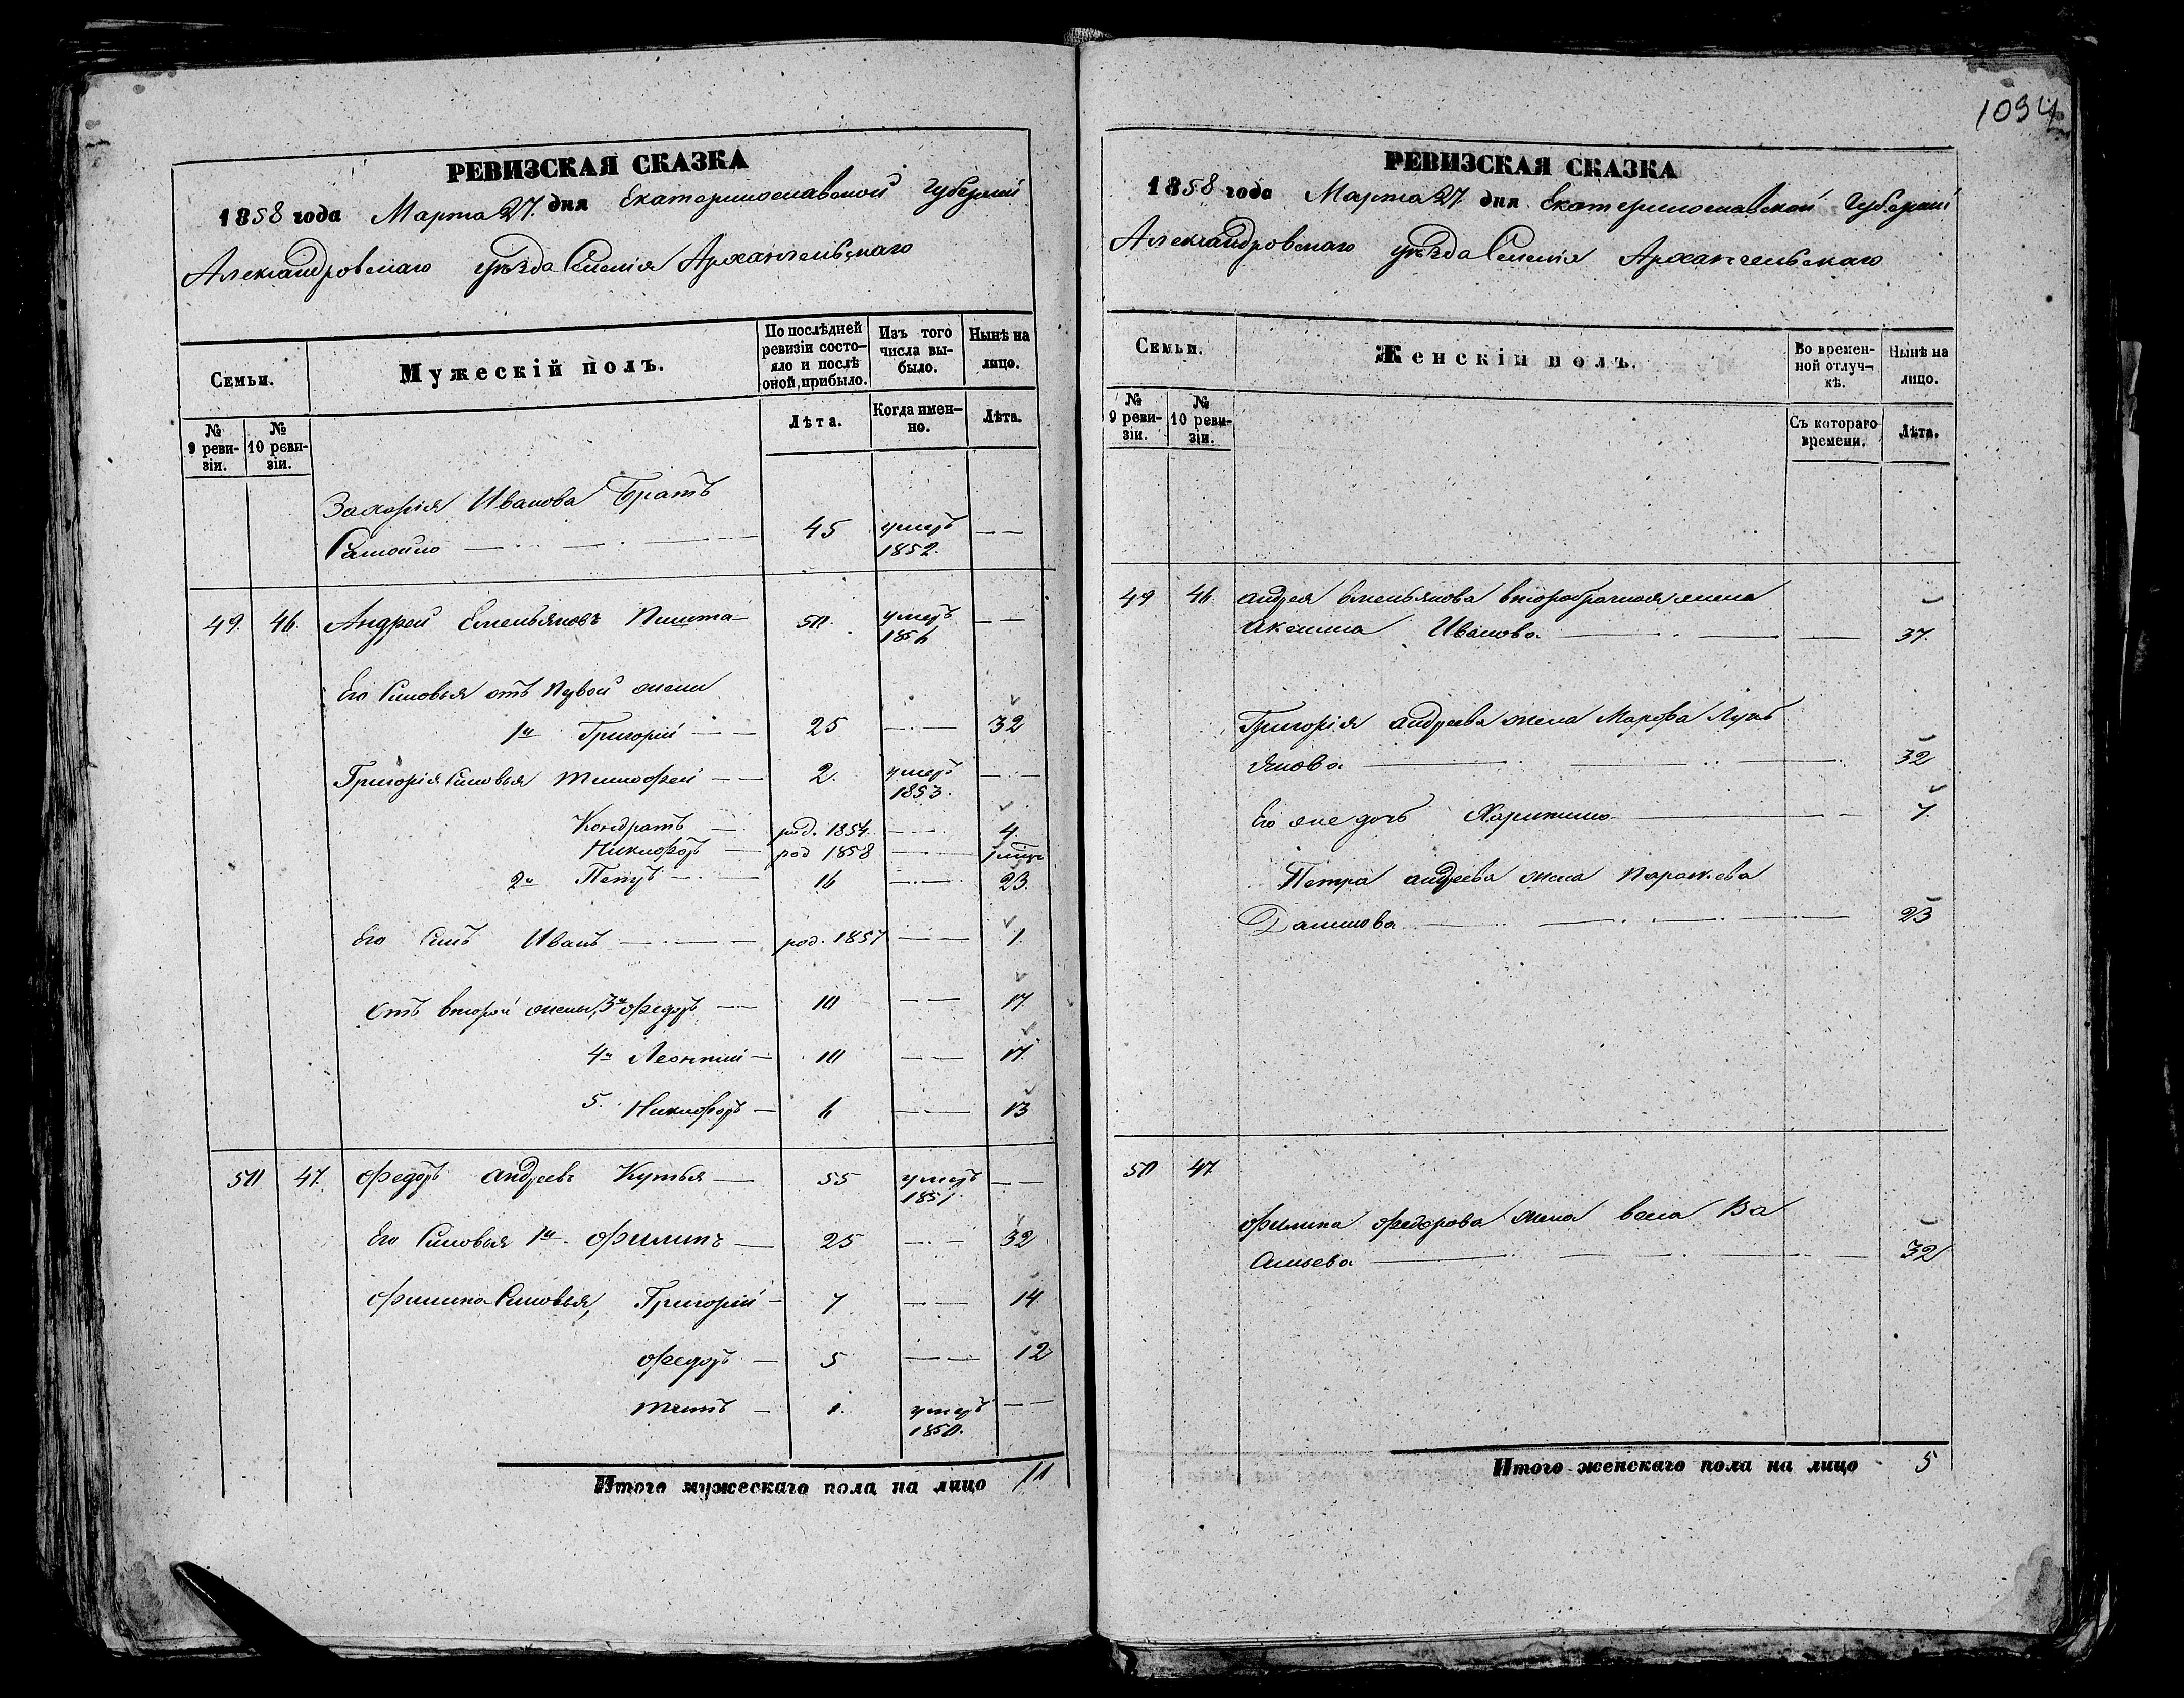 1094
РЕВИЗСКАЯ СКАЗКА
1858 года Марта 27. дня Екатеринославской Губернии
Александровскаго уѣзда Селенія Архангельскаго
Семьи.
Мужескій полъ.
По послѣдней ревизіи состояло и послѣ оной прибыло.
Изъ того числа выбыло.
Нынѣ на лицо.
№ 9 ревизіи.
№ 10 ревизіи.
Лѣта.
Когда именно.
Лѣта.
Захарія Иванова Братъ
Самойло 45 умеръ 1852.
49. 46. Андрей Емельяновъ 50. умеръ 1856
Его Сыновья отъ первой жены
1й Григорій 25 32
Григорія Сыновья Тимофей 2. умеръ 1853.
Кондратъ род. 1854. 4.
Никифоръ род 1858
2й Петръ 16 23.
Его Сынъ Иванъ род. 1857 1.
отъ второй жены, 3й Федоръ 10 17.
4й Леонтій 10 17.
5. Никифоръ 6 13
50 47. Федоръ Андреевъ Кутья 55 умеръ 1851.
Его Сыновья 1й Филипъ 25 32
Филипа Сыновья, Григорій 7 14.
Федоръ 5 12
Титъ 1. умеръ 1850.
Итого мужескаго пола на лицо 11
РЕВИЗСКАЯ СКАЗКА
1858 года Марта 27 дня Екатеринославской Губерніи
Александровскаго уѣзда Селенія Архангельскаго
Семьи.
Женскій полъ.
Во временной отлучкѣ.
Нынѣ на лицо.
№ 9 ревизіи.
№ 10 ревизіи.
Съ котораго времени.
Лѣта.
49 46. Андрея Емельянова второбрачная жена
Аксинья Иванова 37.
Григорія Андреева жена Марфа Лукь
янова 32
Его же дочь Харитина 7.
Петра Андреева жена Параскева
Данилова 23
50 47.
Филипа Федорова жена Ва
сильева 32
Итого женскаго пола на лицо 5